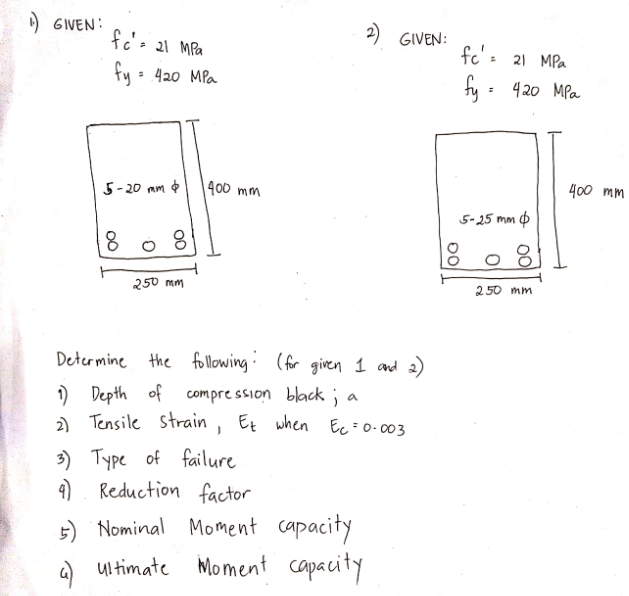 1) GIVEN:
fc' = 21 MPa
fy = 420 MPa
5-20 mm ϕ
400 mm
250 mm
2) GIVEN:
fc' = 21 MPa
fy = 420 MPa
5-25 mm ϕ
400 mm
250 mm
Determine the following: (for given 1 and 2)
1) Depth of compression black; a
2) Tensile strain, Et when Ec = 0.003
3) Type of failure
4) Reduction factor
5) Nominal Moment capacity
6) Ultimate Moment capacity